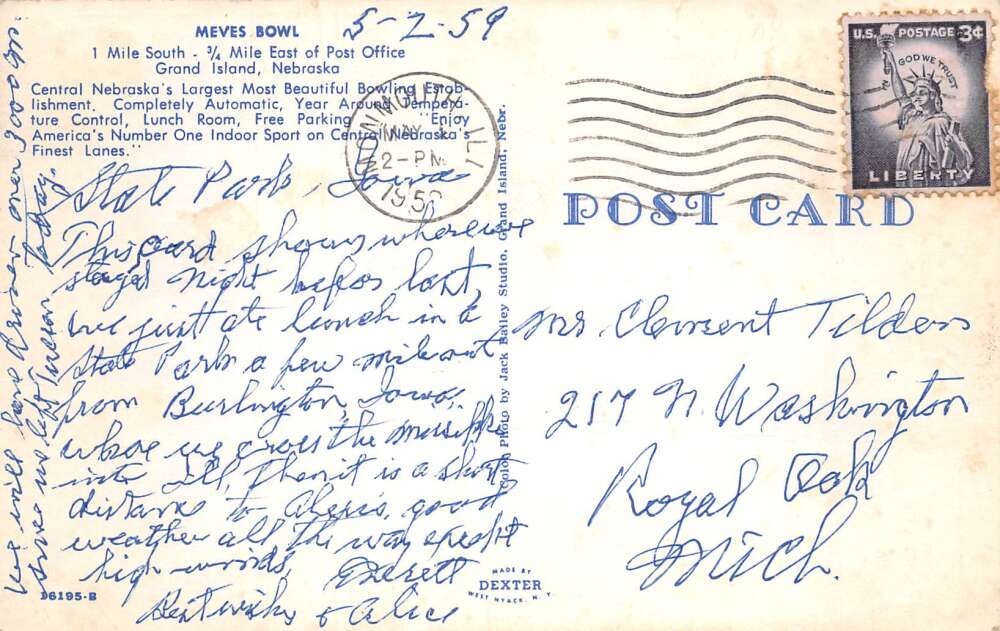 MEVES BOWL
1 Mile South - ¾ Mile East of Post Office
Grand Island, Nebraska
Central Nebraska's Largest Most Beautiful Bowling Estab-
lishment. Completely Automatic, Year Around Tempera-
ture Control, Lunch Room, Free Parking "Enjoy
America's Number One Indoor Sport on Central Nebraska's
Finest Lanes."
5-2-59
MONMOUTH, ILL.
MAY
2-PM
U.S. POSTAGE 3¢
IN GOD WE TRUST
LIBERTY
POST CARD
State Park, Iowa
This card shows where we
stayed night before last,
we just ate lunch in a
State Park a few miles out
from Burlington, Iowa,
where we cross the
into Ill, Then it is a short
distance to Alexis, good
weather all the way except
high winds, Everett
Best wishes & Alice
we will have driven over 3000 mi.
since we left Tucson Today.
Mr. Clement Tildens
217 N. Washington
Royal Oak
Mich.
Color Photo by Jack Bailey Studio, Grand Island, Nebr.
MADE BY
DEXTER
WEST NYACK, N. Y.
96195-B